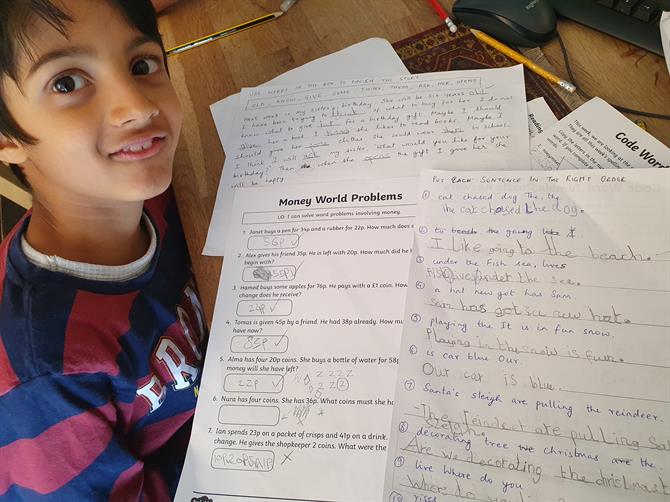 USE WORDS IN THE BOX TO FINISH THE STORY
OLD, KNOW, GIVE, SOME, THINK, THEM, ASK, HER, OPENS
Next week is my sister's birthday. She will be six years old.
I have been trying to think of what to buy for her. I do not
know what to give her for a birthday gift. Maybe I should
given her a book. I know she likes to read books. Maybe I
should give her some clothes she could wear to school.
I think I will ask my sister, 'What would you like for your
birthday?' Then when she opens the gift I gave her she
will be happy.
Money World Problems
LO: I can solve word problems involving money.
1. Janet buys a pen for 34p and a rubber for 22p. How much does
56p ✓
2. Alex gives his friend 35p. He is left with 20p. How much did he
begin with?
55p ✓
3. Hamed buys some apples for 76p. He pays with a £1 coin. How
change does he receive?
24p ✓
4. Tomas is given 45p by a friend. He had 38p already. How
have now?
83p ✓
5. Alma has four 20p coins. She buys a bottle of water for 58p
money will she have left?
22p ✓
6. Nura has four coins. She has 36p. What coins must she
7. Ian spends 23p on a packet of crisps and 41p on a drink.
change. He gives the shopkeeper 2 coins. What were the
10p 20p 5p 1p
PUT EACH SENTENCE IN THE RIGHT ORDER
① cat chased dog The, the
the cat chased the dog.
② to beach the going like I.
I like going to the beach.
③ under the Fish sea, lives
Fish live under the sea.
④ a hat new got has Sam.
Sam has got a new hat.
⑤ playing the It is in fun snow.
Playing in the snow is fun.
⑥ is car blue Our.
Our car is blue.
⑦ Santa's sleigh are pulling the reindeer.
The reindeer are pulling
sleigh
⑧ decorating tree we christmas are the
Are we decorating the christmas
⑨ live Where do you
Where do you
⑩ rises
Reading
This week we are looking at
Code Wor